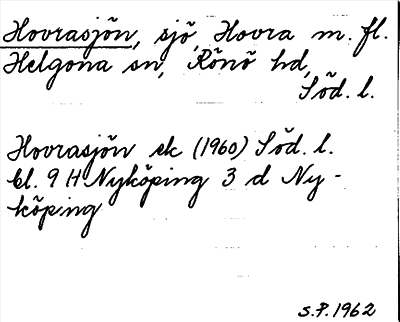 Hovrasjön, sjö, Hovra m. fl.
Helgona sn, Rönö hd,
Söd. l.
Hovrasjön ek (1960) Söd. l.
bl. 9 H Nyköping 3 d Ny-
köping
S.P. 1962